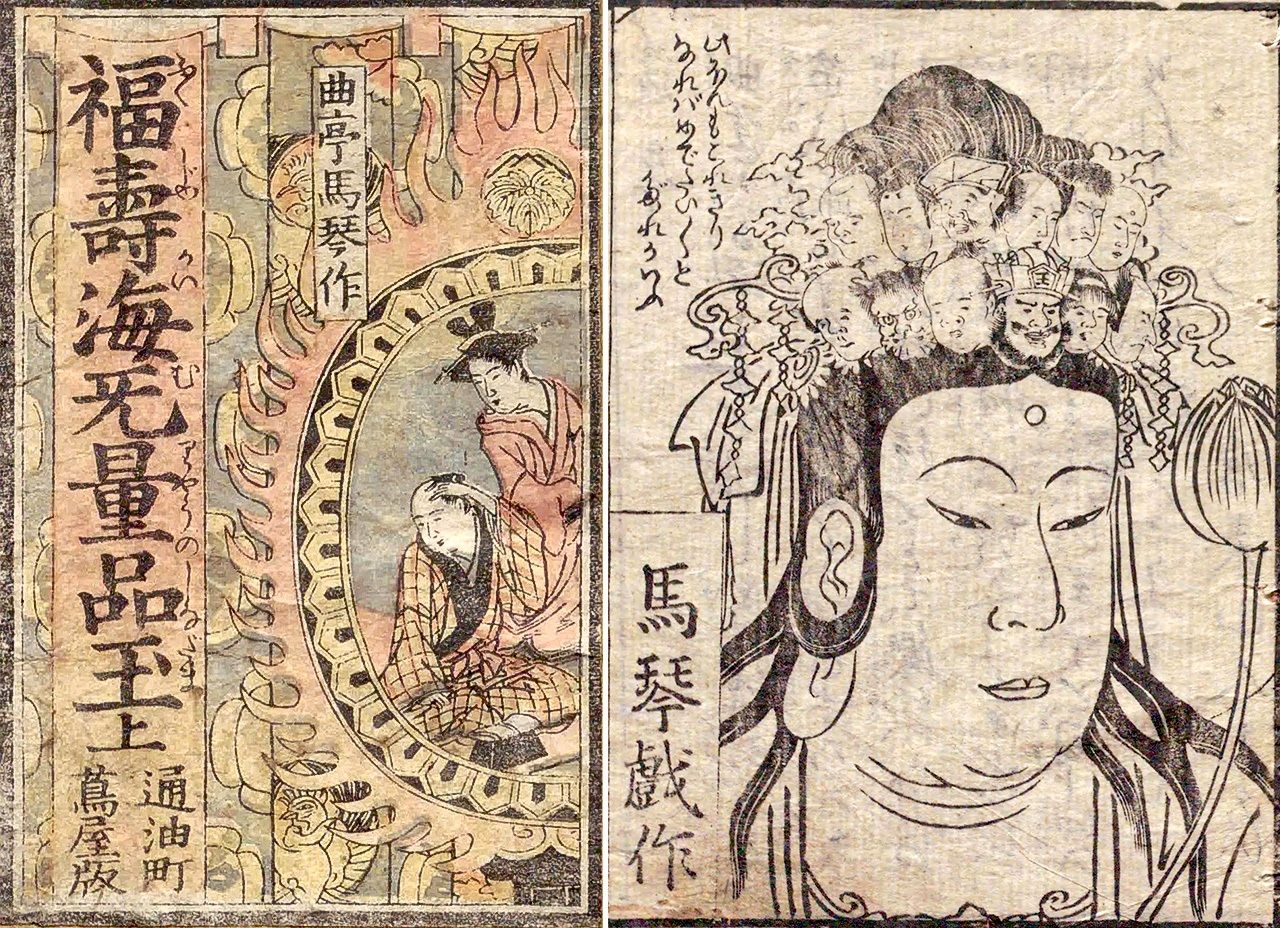 曲亭馬琴作
ふくじゆかいむりやうのしなだま
福壽海无量品玉上
通油町
蔦屋版
此ほんもこれきり
なればめでたひ〳〵と
だれかいふ
馬琴戯作